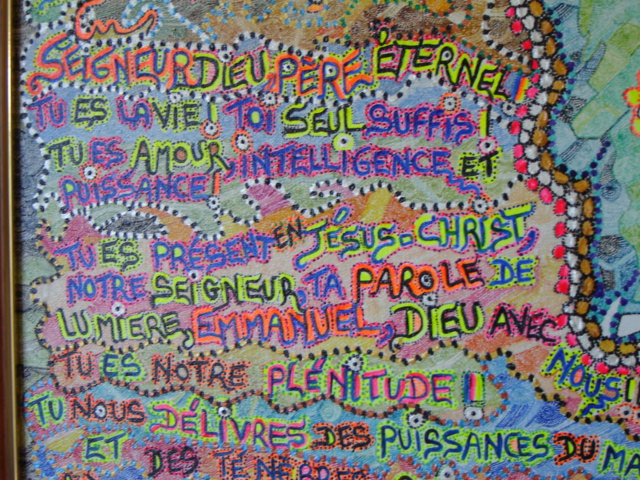 SEIGNEUR DIEU, PÈRE ÉTERNEL!
TU ES LA VIE! TOI SEUL SUFFIS!
TU ES AMOUR, INTELLIGENCE ET
PUISSANCE!
TU ES PRÉSENT EN JÉSUS-CHRIST,
NOTRE SEIGNEUR, TA PAROLE DE
LUMIERE, EMMANUEL, DIEU AVEC
NOUS!
TU ES NOTRE PLÉNITUDE!
TU NOUS DÉLIVRES DES PUISSANCES DU
ET DES TÉNÈBRES